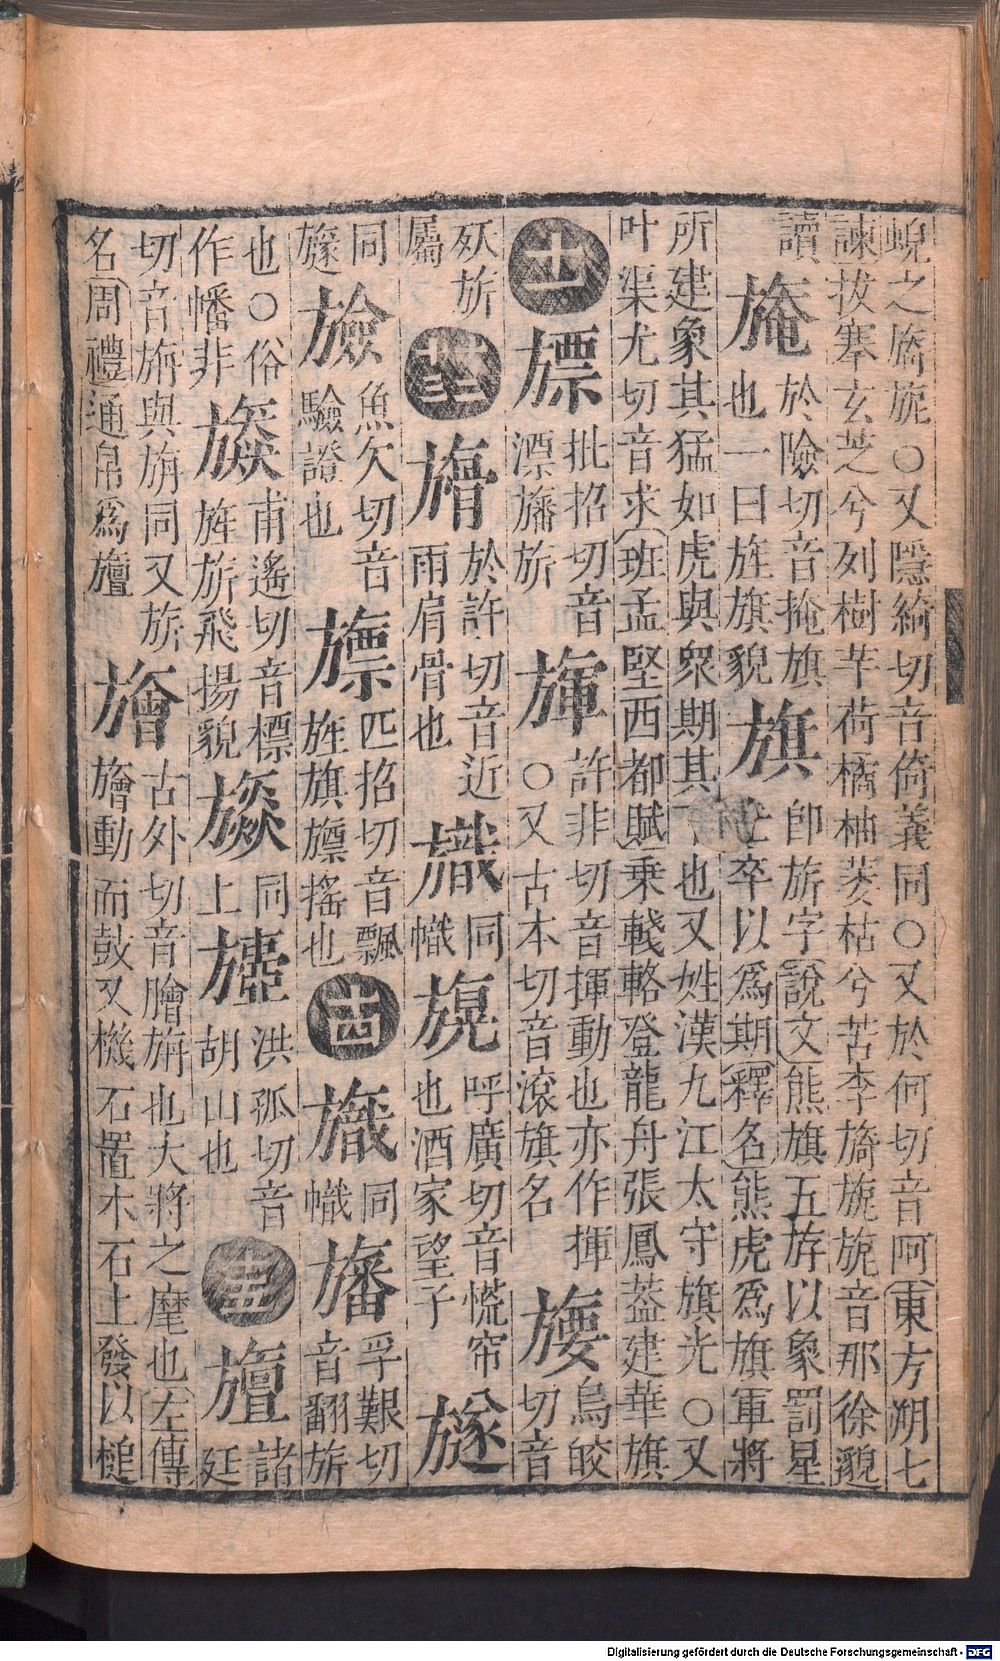 蜺之旖旎○又隱綺切音倚義同○又於何切音阿東方朔七
諫拔搴玄芝兮列樹芋荷橘柚萎枯兮苦李旖旎旎音那徐邈
讀
於險切音掩旗
也一曰旌旗貌
旗
卽旂字說文熊旗五斿以象罰星
士卒以爲期釋名熊虎爲旗軍將
所建象其猛如虎與眾期其下也又姓漢九江太守旗光○又
叶渠尤切音求班孟堅西都賦乘輚輅登龍舟張鳳葢建華旗
十一
旚
批招切音
漂旛旂
許非切音揮動也亦作揮
○又古本切音滾旗名
烏皎
切音
旂
屬
十二
於許切音近
雨肩骨也
旘
同
幟
呼廣切音慌帘
也酒家望子
同
旞
魚欠切音
驗證也
旚
匹招切音飄
旌旗旚搖也
同
幟
旛
孚艱切
音翻旂
也○俗
作幡非
甫遙切音標
旌旂飛揚貌
同
上
洪孤切音
胡山也
旜
諸
延
切音旃與旃同又旂
名周禮通帛爲旜
旝
古外切音膾旃也大將之麾也左傳
旝動而鼓又機石置木石上發以槌
Digitalisierung gefördert durch die Deutsche Forschungsgemeinschaft - DFG